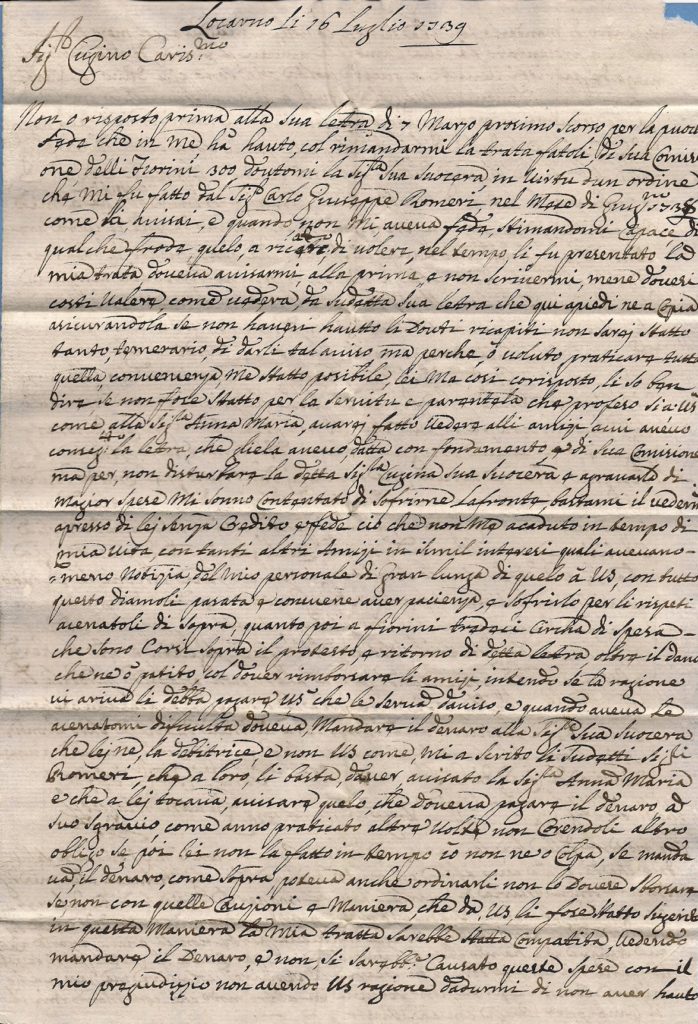 Locarno li 16 Luglio 1739
Sig.r Cugino Caris.mo
Non o risposto prima alla sua letra di 7 Marzo prosimo scorso per la puoca
fede che in me hà hauto col rimandarmi la trata fatoli di sua Comisi
one delli Fiorini 300 douutomi la Sig.ra Sua Suocera, in uirtu dun ordine
che Mi fu fatto dal Sig.r Carlo Giuseppe Romeri, nel Mese di Giug.o 1738
come li auisai, e quando non Mi aueua fede stimandomi Capace di
qualche frode quelo a di uolere, nel tempo, li fu presentato la
mia trata doueua auisarmi, alla prima, e non scriuermi, mene douesi
costi ualere come uederà, da sudetta sua letra che qui apiedi ne a Copia
asicurandola se non haueri hautto li Douti ricapiti non sarej statto
tanto, temerario, di darli tal auiso, ma perche, ò uoluto praticare tutta
quella, conuenienza, Me stattto posibile, lei Ma cosi corisposto, li so ben
dire se non fose statto per la seruitu e parentela che profeso si a US
come alla Sig.ra Anna Maria, auarej fatto uedere alli amizi a cui aueuo
la letra, che diela aueuo, datta con fondamento e di sua Comisione
ma per, non disturbare la detta Sig.ra Cugina sua Suocera e agrauarla di
magior spese Mi sonno Contentato di sofrirne Lafronto, bastami il uedermi
apresso di lej senza Credito e fede ciò che non Me acaduto in tempo di
mia uita con tanti altri Amizi in simil interesi quali aueuano
meno Notizia, del Mio personale di Gran lunga di quelo à US, con tutto
questo diamoli pasata e conuiene auer pacienza, e sofrirlo per li rispeti
acenatoli di sopra, quanto poi a fiorini tredeci Circha di spesa
che sono Corsi sopra il protesto, e ritorno di detta letra oltre il dano
che ne ò patito, col douer rimborsare li amizi intendo se la razione
ui ariua li debba pagare US che le serua dauiso, e quando aueua le
acenatomi dificulta doueua, Mandare il denaro alla Sig.ra Sua Suocera
che lej ne, la debitrice, e non US come, mi a scrito li sudetti Sig.ri
Romeri, che a loro, li basta dauer auisato la Sig.ra Anna Maria
e che a lej tocaua, auisare quelo, che doueua pagare il denaro à
suo sgrauio come anno praticato altre uolte non altro
obligo se poi lei non la fatto in tempo io non ne ò Colpa, se manda
il denaro, come sopra, poteua anche ordinarli non lo Douere sborsare
se, non con quelle Cauzioni e Maniera, che da, US li fose statto sugerido
in questa Maniera la Mia tratta sarebbe statta Compatita, uedendo
mandare il Denaro, e non, si sarebbe Causato queste spese con il
mio pregiudizzio non auendo US razione dadurmi di non auer hauto